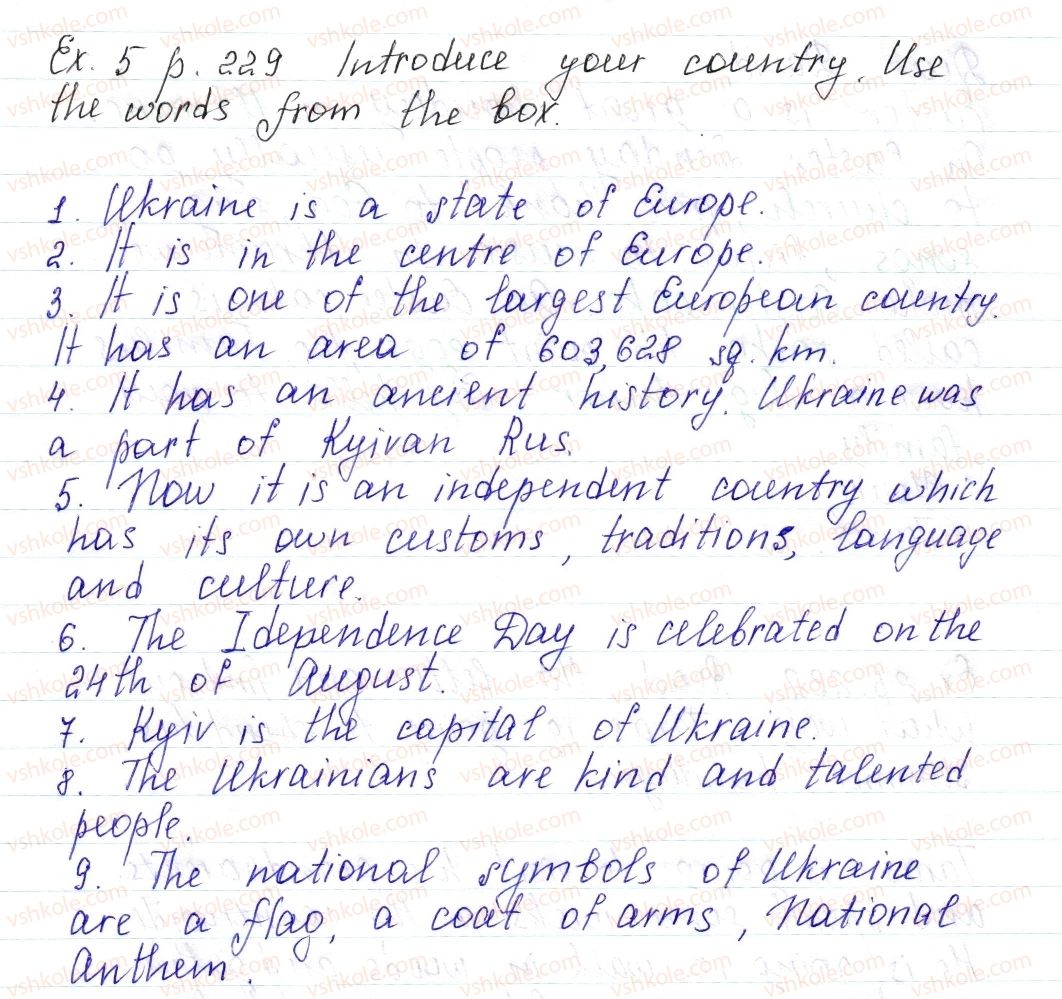 Ex. 5 p. 229 Introduce your country. Use
the words from the box.
1. Ukraine is a state of Europe.
2. It is in the centre of Europe.
3. It is one of the largest European country.
It has an area of 603,628 sq. km.
4. It has an ancient history. Ukraine was
a part of Kyivan Rus.
5. Now it is an independent country which
has its own customs, traditions, language
and culture.
6. The Idependence Day is celebrated on the
24th of August.
7. Kyiv is the capital of Ukraine.
8. The Ukrainians are kind and talented
people.
9. The national symbols of Ukraine
are a flag, a coat of arms, National
Anthem.